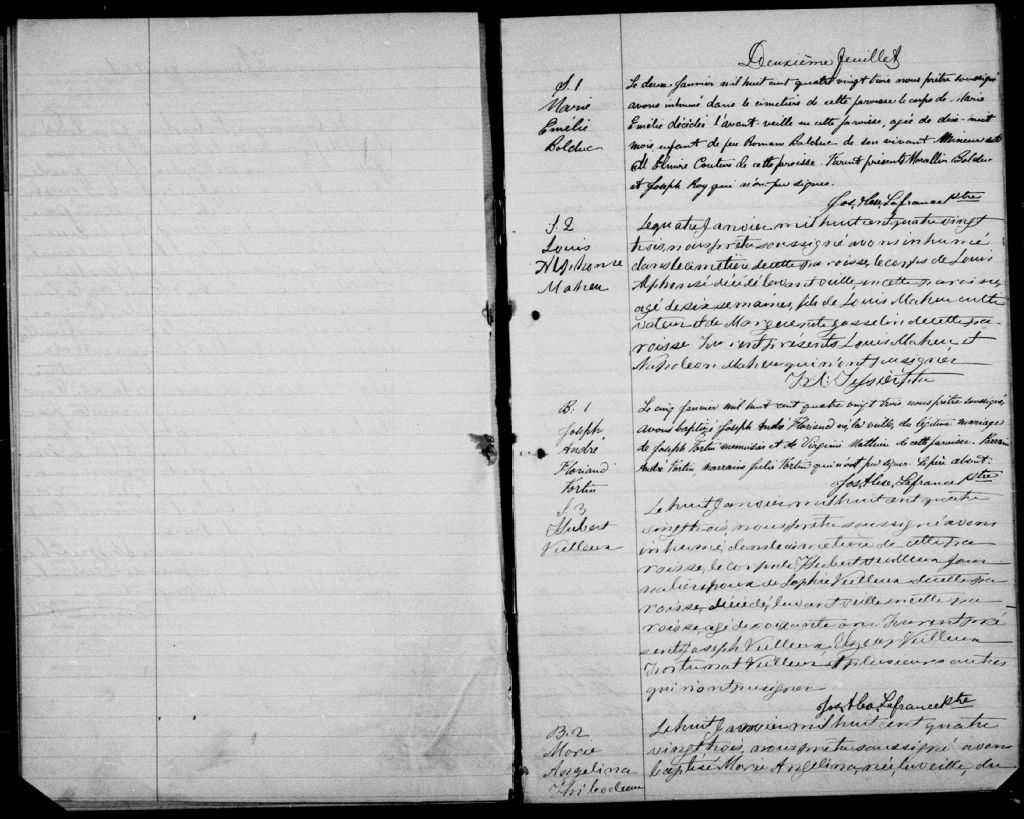 Deuxième feuillet
S. 1
Marie
Emélie
Bolduc
Le deux Janvier mil huit cent quatre vingt trois nous prêtre soussigné
avons inhumé dans le cimetière de cette paroisse le corps de Marie
Emélie décédée l'avant-veille en cette paroisse, agée de dix-huit
mois, enfant de feu Romain Bolduc de son vivant Mineur et
M Elmire Couture de cette paroisse. Furent présents Bolduc
et Joseph Roy qui n'on pu signer.
Jos. Alex. Lafrance Ptre
S. 2
Louis
Alphonse
Maheu
Le quatre Janvier mil huit cent quatre vingt
trois, nous prêtre soussigné avons inhumé
dans le cimetière de cette paroisse, le corps de Louis
Alphonse décédé l'avant veille, en cette paroisse,
agé de six semaines, fils de Louis Maheu culti
vateur et de Marguerite gosselin de cette pa
roisse Furent présents Louis Maheu et
Napoleon Maheu qui n'ont pu signer
Ptre
B. 1
Joseph
André
Floriand
Fortin
Le cinq Janvier mil huit cent quatre vingt trois nous prêtre soussigné
avons baptizé Joseph André Floriand né la veille, du légitime mariage
de Joseph Fortin menuisier et de Virginie Mathieu de cette paroisse. Parrain
André Fortin, marraine Julie Fortin qui n'ont pu signer. Le père absent.
Jos. Alex. Lafrance Ptre
S. 3
Hubert
Veilleux
Le huit Janvier mil huit cent quatre
vingt trois, nous prêtre soussigné avons
inhumé, dans le cimetière de cette pa
roisse, le corps de Hubert Veilleux Jour
nalier epoux de Sophie Veilleux de cette pa
roisse, décédé, l'avant veille en cette pa
roisse, agé de soixante ans. Furent pré
sents Joseph Veilleux, Veilleux
Fortunat Veilleux et plusieurs autres
qui n'ont pu signer
Jos. Alex. Lafrance Ptre
B. 2
Marie
Angelina
Thibodeau
Le huit Janvier mil huit cent quatre
vingt trois, nous prêtre soussigné avons
baptisé Marie Angelina, née, la veille, du